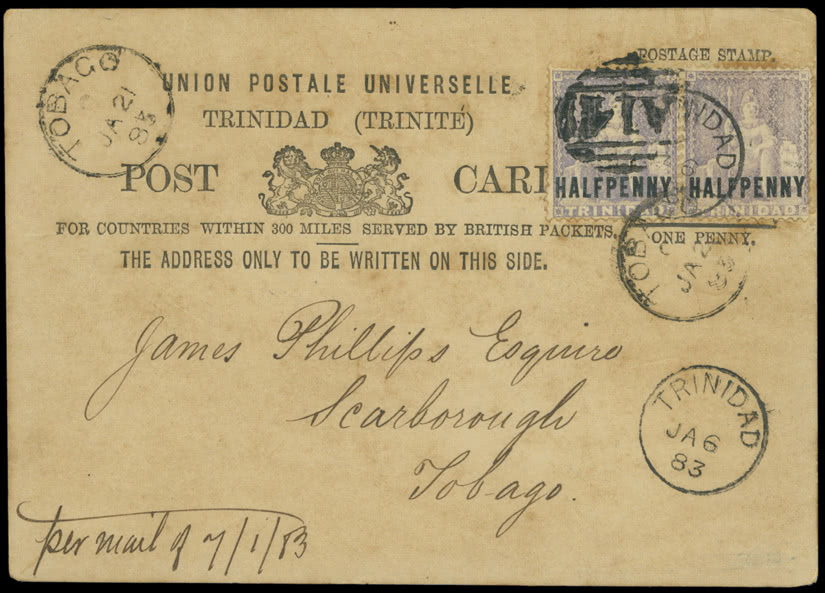 POSTAGE STAMP.
UNION POSTALE UNIVERSELLE
TRINIDAD (TRINITÉ)
POST CAR
FOR COUNTRIES WITHIN 300 MILES SERVED BY BRITISH PACKETS.
THE ADDRESS ONLY TO BE WRITTEN ON THIS SIDE.
TOBAGO
JA 21
83
HALFPENNY
TRINIDAD
HALFPENNY
TRINIDAD
A14
TRINIDAD
ONE PENNY.
TOBA
JA 2
83
James Phillips Esquire
Scarborough
Tobago.
TRINIDAD
JA 6
83
per mail of 7/1/83